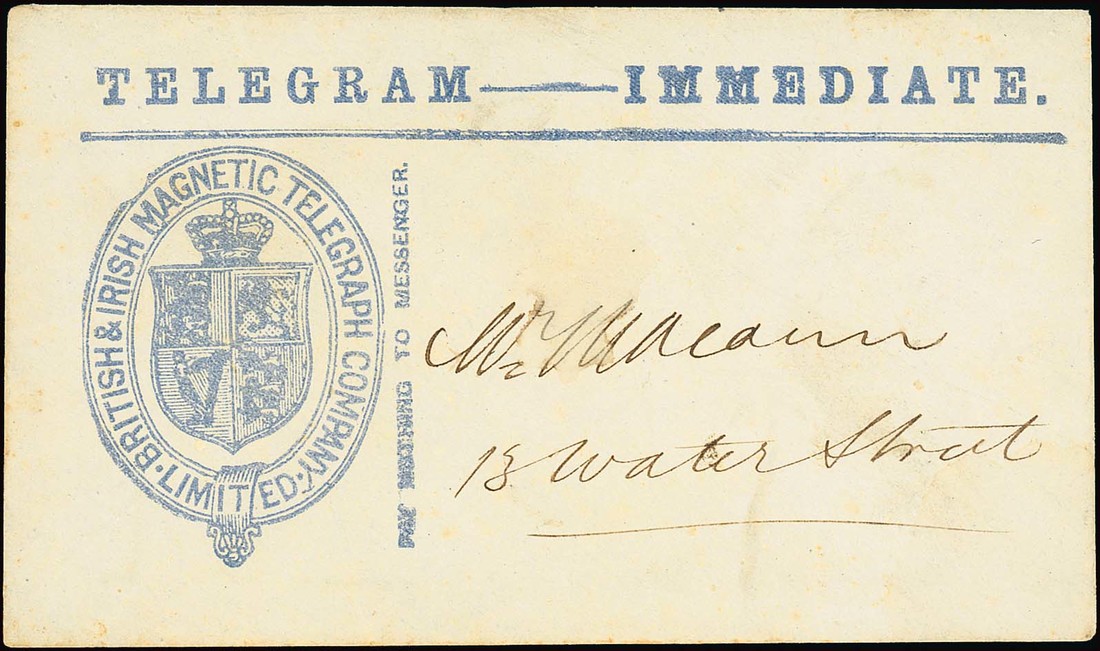 TELEGRAM — IMMEDIATE.
BRITISH & IRISH MAGNETIC TELEGRAPH COMPANY · LIMITED ·
PAY NOTHING TO MESSENGER.
Mr Macaun
13 Water Street